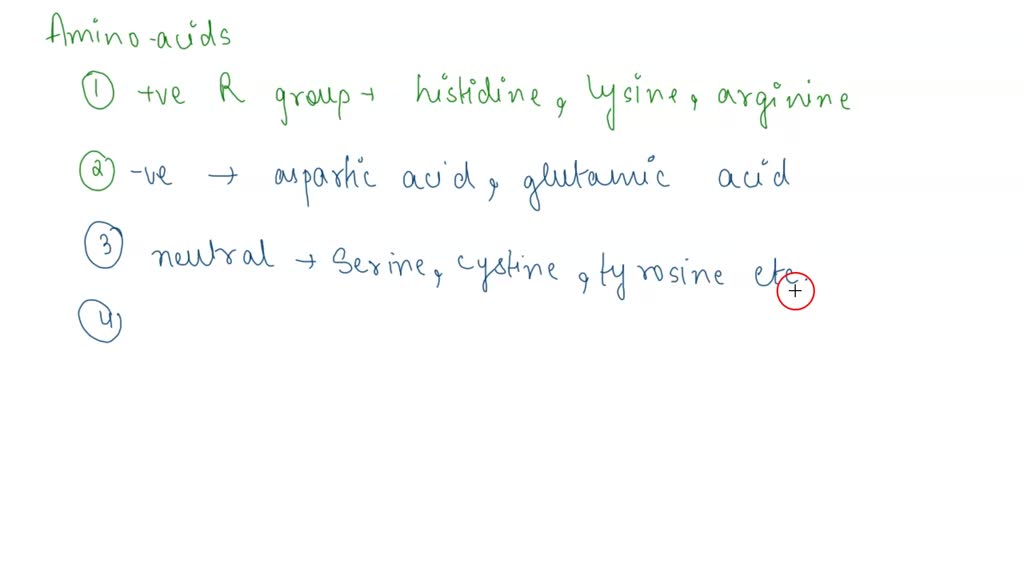 Amino-acids
① +ve R group → histidine, lysine, arginine
② -ve → aspartic acid, glutamic acid
③ neutral → Serine, cystine, tyrosine etc.
④